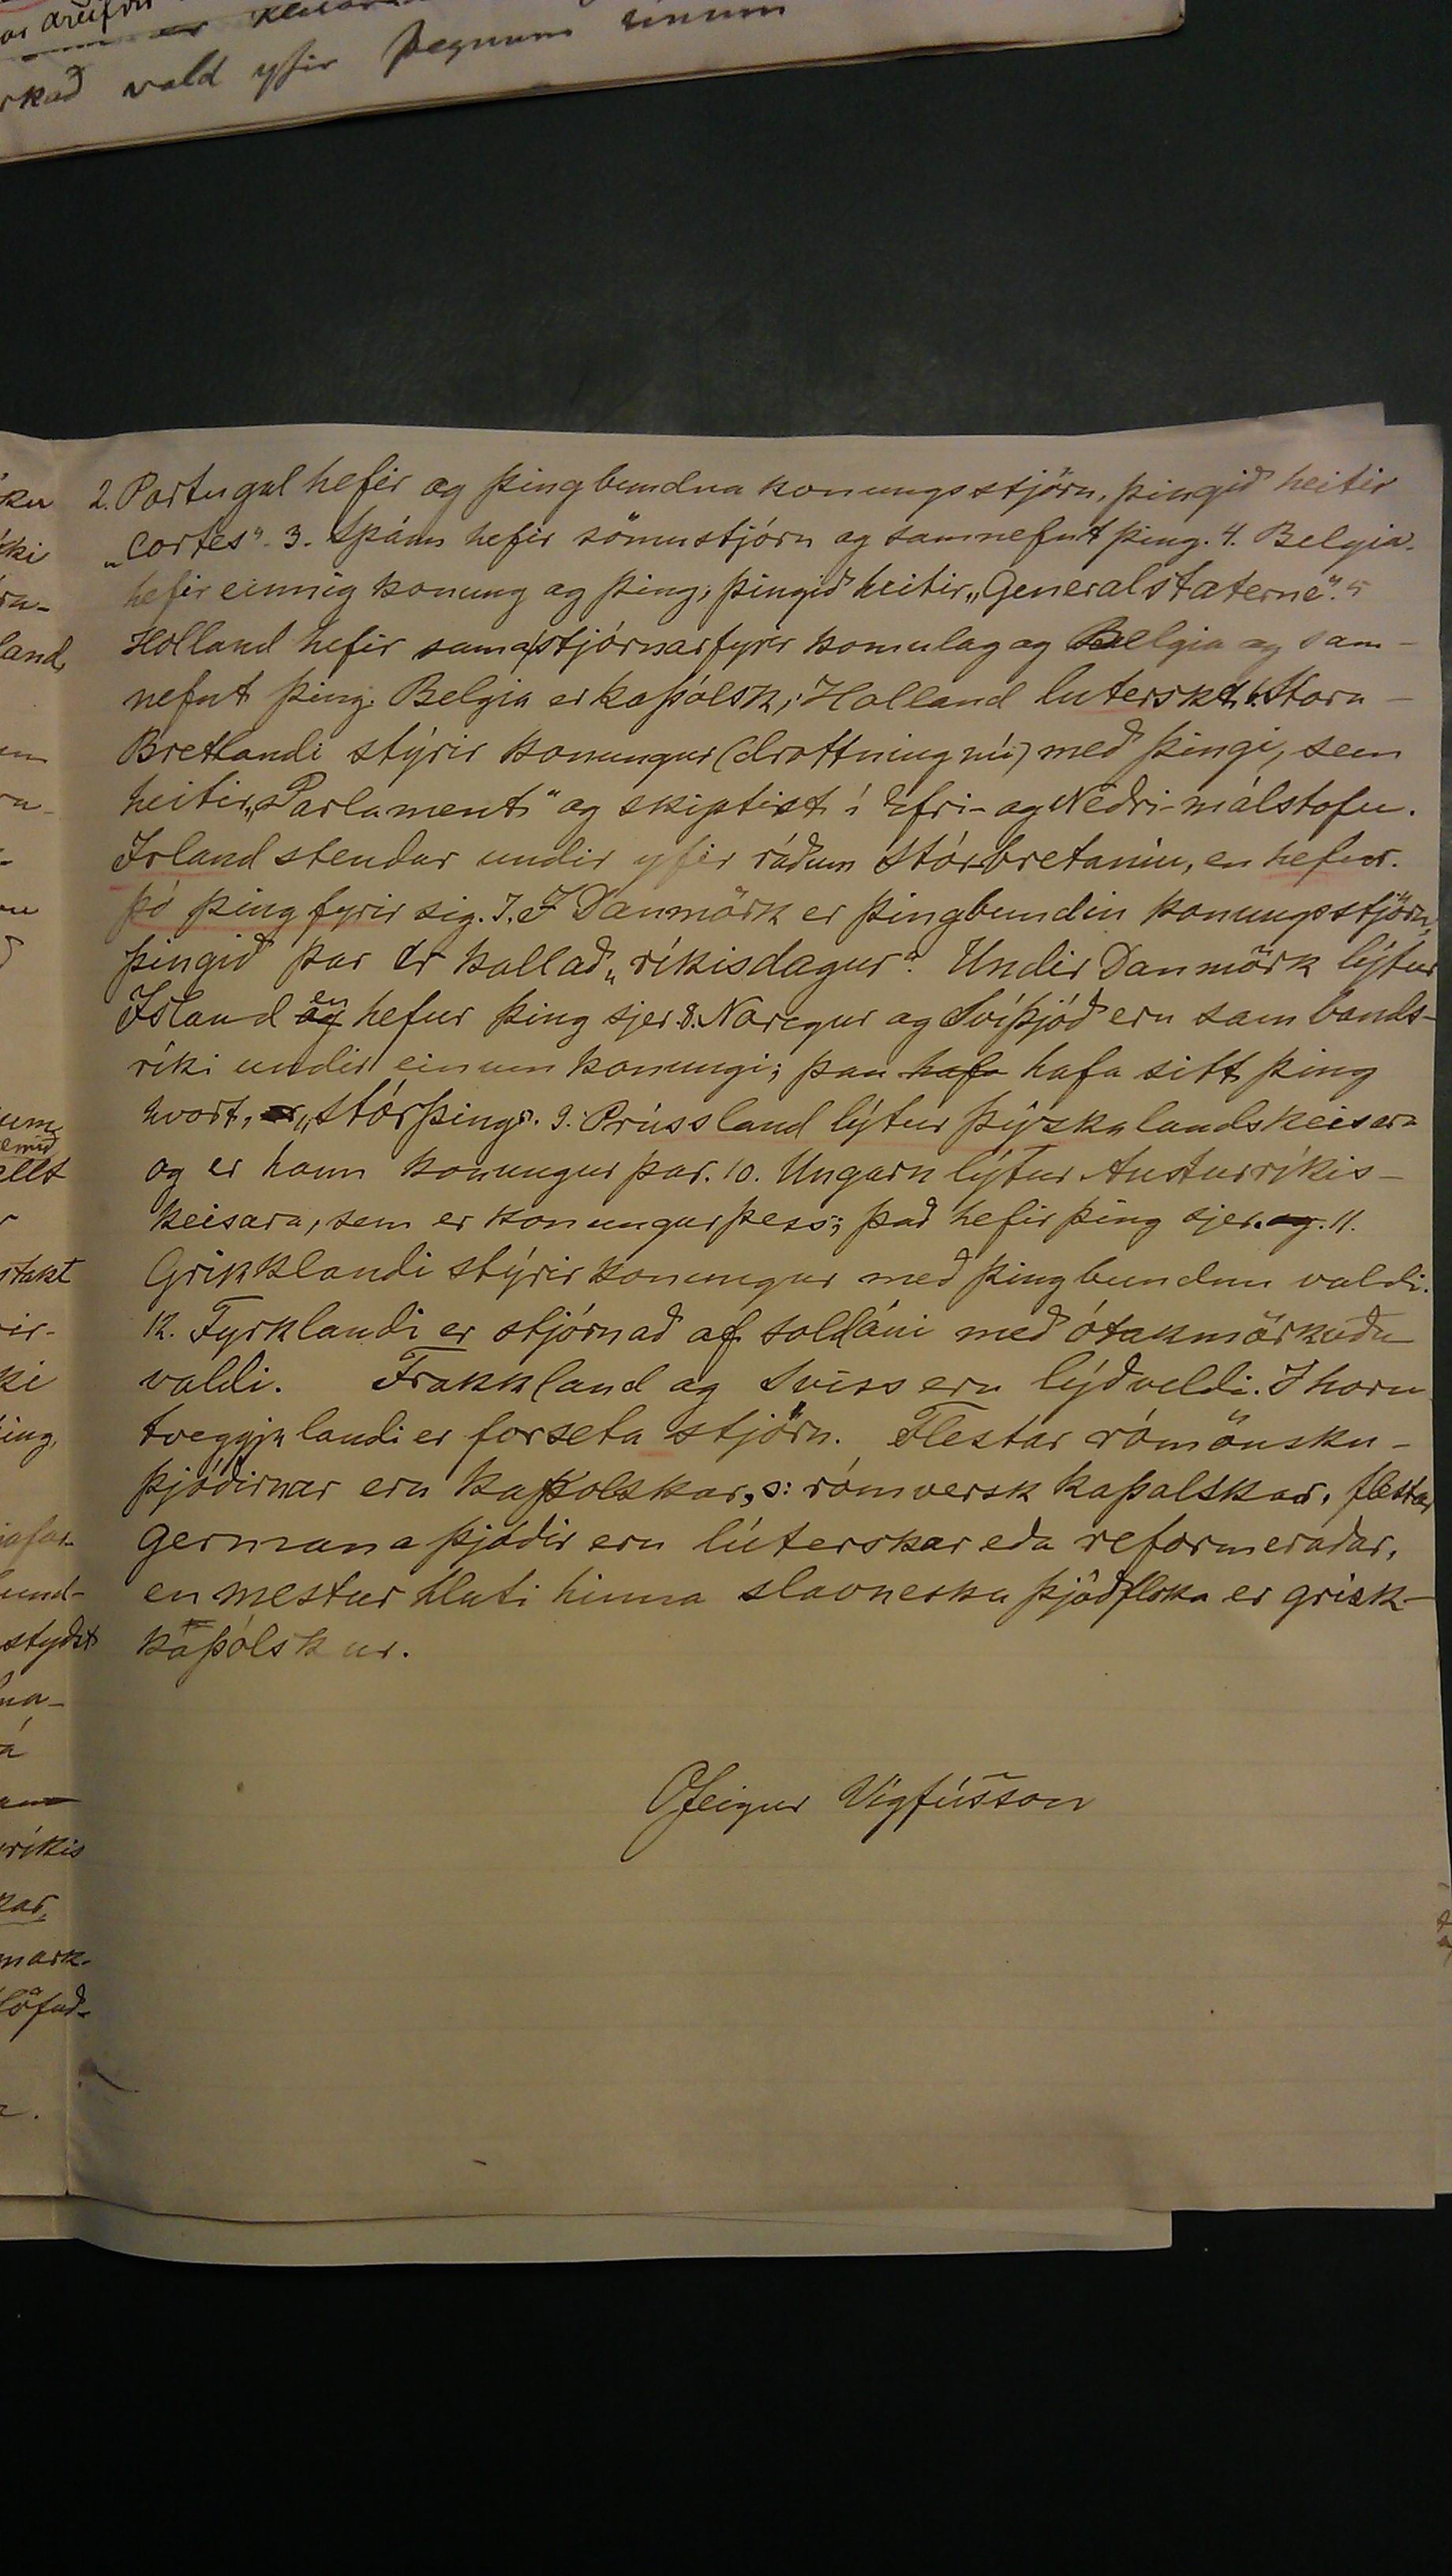 rkað vald yfir þegnum sínum
2. Portugal hefir og þingbundna konungsstjörn, þingið heitir
„Cortes“. 3. Spánn hefir sömustjórn og samnefnt þing. 4. Belgia
hefir einnig konung og þing; þingið heitir „Generalstaterne“. 5
Holland hefir sama stjórnarfyrir komulag og Belgia og sam-
nefnt þing. Belgia er kaþólsk; Holland luterskt. 6. Stora-
Bretlandi stýrir konungur (drottning nú) með þingi, sem
heitir „Parlament“ og skiptist í Efri- og Neðri-málstofu.
Irland stendur undir yfir ráðum Stórbretaníu, en hefur
þó þing fyrir sig. 7. Í Danmörk er þingbundin konungsstjörn,
þingið þar er kallað „ríkisdagur“. Undir Danmörk lýtur
Island og en hefur þing sjer. 8. Noregur og Svíþjóð eru sambands-
ríki undir einum konungi; þau hafa hafa sitt þing
hvort, „stórþing“. 9. Prússland lýtur Þýzkalandskeisara
og er hann konungur þar. 10. Ungarn lýtur Austurríkis-
keisara, sem er konungur þess; það hefir þing sjer. og. 11.
Grikklandi stýrir konungur með þingbundnu valdi.
12. Tyrklandi er stjórnað af soldáni með ótakmörkuðu
valdi. Frakkland og Sviss eru lýðveldi. I horu
tveggja landi er forseta stjörn. Flestar rómönsku-
þjóðirnar eru kaþolskar, ɔ: rómversk kaþalskar, flestar
germana þjóðir eru lúterskar eða reformeraðar,
en mestur hluti hinna slavnesku þjóðfloka er grisk-
kaþólskur.
Ofeigur Vigfússon
ku
ki
land,
allt
stakt
ir-
ki
ing,
und-
styðst
na-
á
ríkis
kar,
mark-